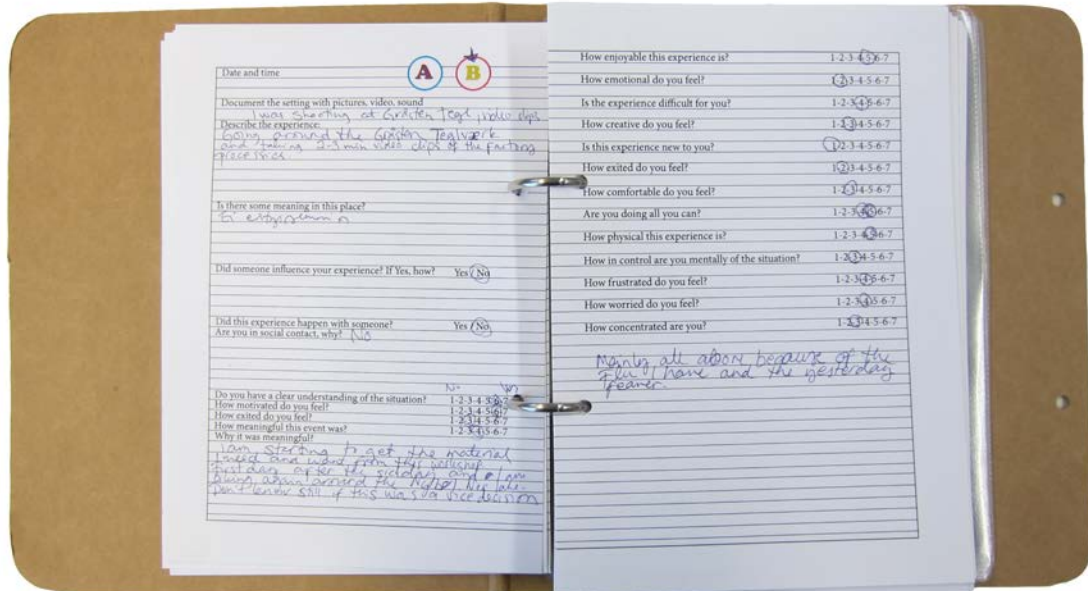 A B
Date and time
Document the setting with pictures, video, sound
I was shooting at Gråsten Tegl, video clips
Describe the experience:
Going around the Gråsten Teglværk
and taking 2-3 min video clips of the factory
processes.
Is there some meaning in this place?
Did someone influence your experience? If Yes, how? Yes / No
Did this experience happen with someone? Yes / No
Are you in social contact, why? No
No Yes
Do you have a clear understanding of the situation? 1-2-3-4-5-6-7
How motivated do you feel? 1-2-3-4-5-6-7
How exited do you feel? 1-2-3-4-5-6-7
How meaningful this event was? 1-2-3-4-5-6-7
Why it was meaningful?
I am starting to get the material
I need and want from this workshop
first day after the sickday and I am
biking again around the
Don't know still if this was a vice decision
How enjoyable this experience is? 1-2-3-4-5-6-7
How emotional do you feel? 1-2-3-4-5-6-7
Is the experience difficult for you? 1-2-3-4-5-6-7
How creative do you feel? 1-2-3-4-5-6-7
Is this experience new to you? 1-2-3-4-5-6-7
How exited do you feel? 1-2-3-4-5-6-7
How comfortable do you feel? 1-2-3-4-5-6-7
Are you doing all you can? 1-2-3-4-5-6-7
How physical this experience is? 1-2-3-4-5-6-7
How in control are you mentally of the situation? 1-2-3-4-5-6-7
How frustrated do you feel? 1-2-3-4-5-6-7
How worried do you feel? 1-2-3-4-5-6-7
How concentrated are you? 1-2-3-4-5-6-7
Mainly all above because of the
Flu I have and the yesterday
feaver.